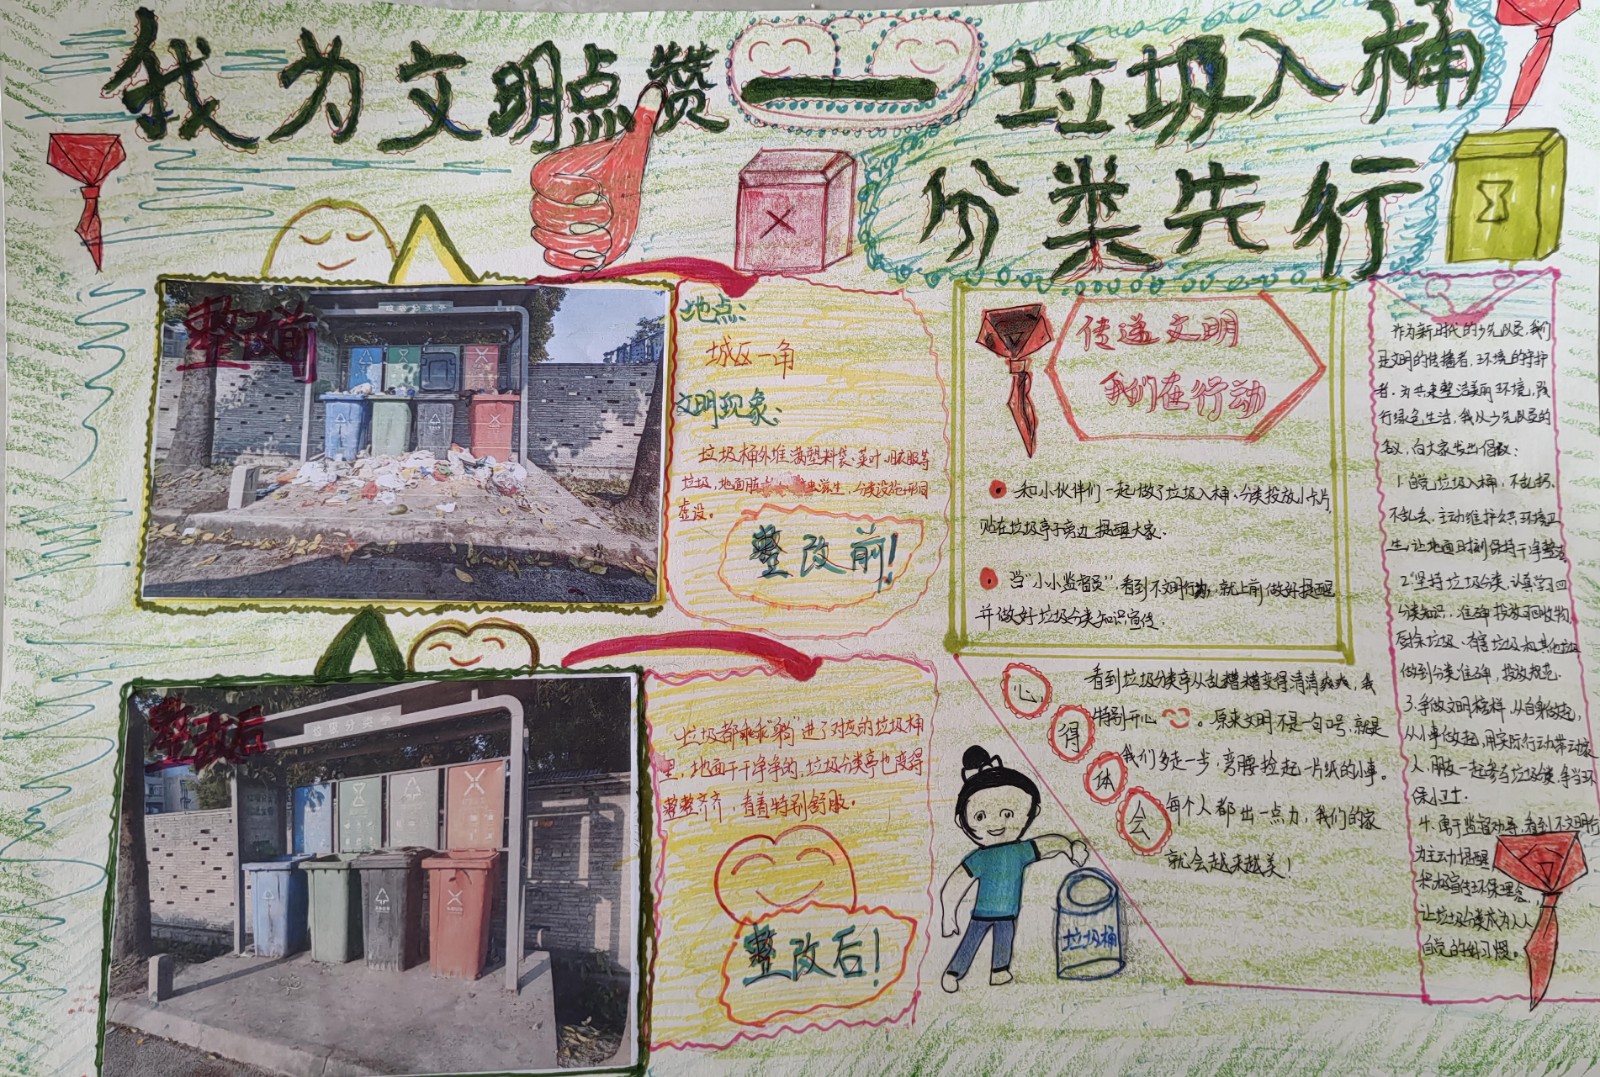 我为文明点赞
垃圾入桶
分类先行
整改前
地点:
城区一角
文明现象:
垃圾桶外堆满塑料袋、菜叶、旧衣服等
垃圾,地面脏 虫滋生,分类设施形同
虚设。
整改前!
整改后
垃圾都乖乖“躺”进了对应的垃圾桶
里,地面干干净净的,垃圾分类亭也变得
整整齐齐,看着特别舒服。
整改后!
传递文明
我们在行动
和小伙伴们一起做了垃圾入桶、分类投放小卡片,
贴在垃圾亭子旁边提醒大家.
当“小小监督员”,看到不文明行为,就上前做好提醒
并做好垃圾分类知识宣传.
心得体会
看到垃圾分类亭从乱糟糟变得清清爽爽,我
特别开心。原来文明不是一句口号,就是
我们多走一步,弯腰捡起一片纸的小事。
每个人都出一点力,我们的家
就会越来越美!
垃圾桶
作为新时代的少先队员,我们
是文明的传播者、环境的守护
者。为共来整洁美丽环境,践
行绿色生活,我以少先队员的
名义,向大家发出倡议:
1.自觉垃圾入桶,不乱扔、
不乱丢、主动维护公共环境卫
生,让地面时刻保持干净整洁.
2.坚持垃圾分类,认真学习四
分类知识,准确投放可回收物、
厨余垃圾、有害垃圾和其他垃圾
做到分类准确,投放规范.
3.争做文明榜样,从自身做起,
从小事做起,用实际行动带动家
人、朋友一起参与垃圾分类,争当环
保小卫士.
4.勇于监督劝导,看到不文明行
为主动提醒
积极宣传环保理念,
让垃圾分类成为人人
自觉的好习惯。